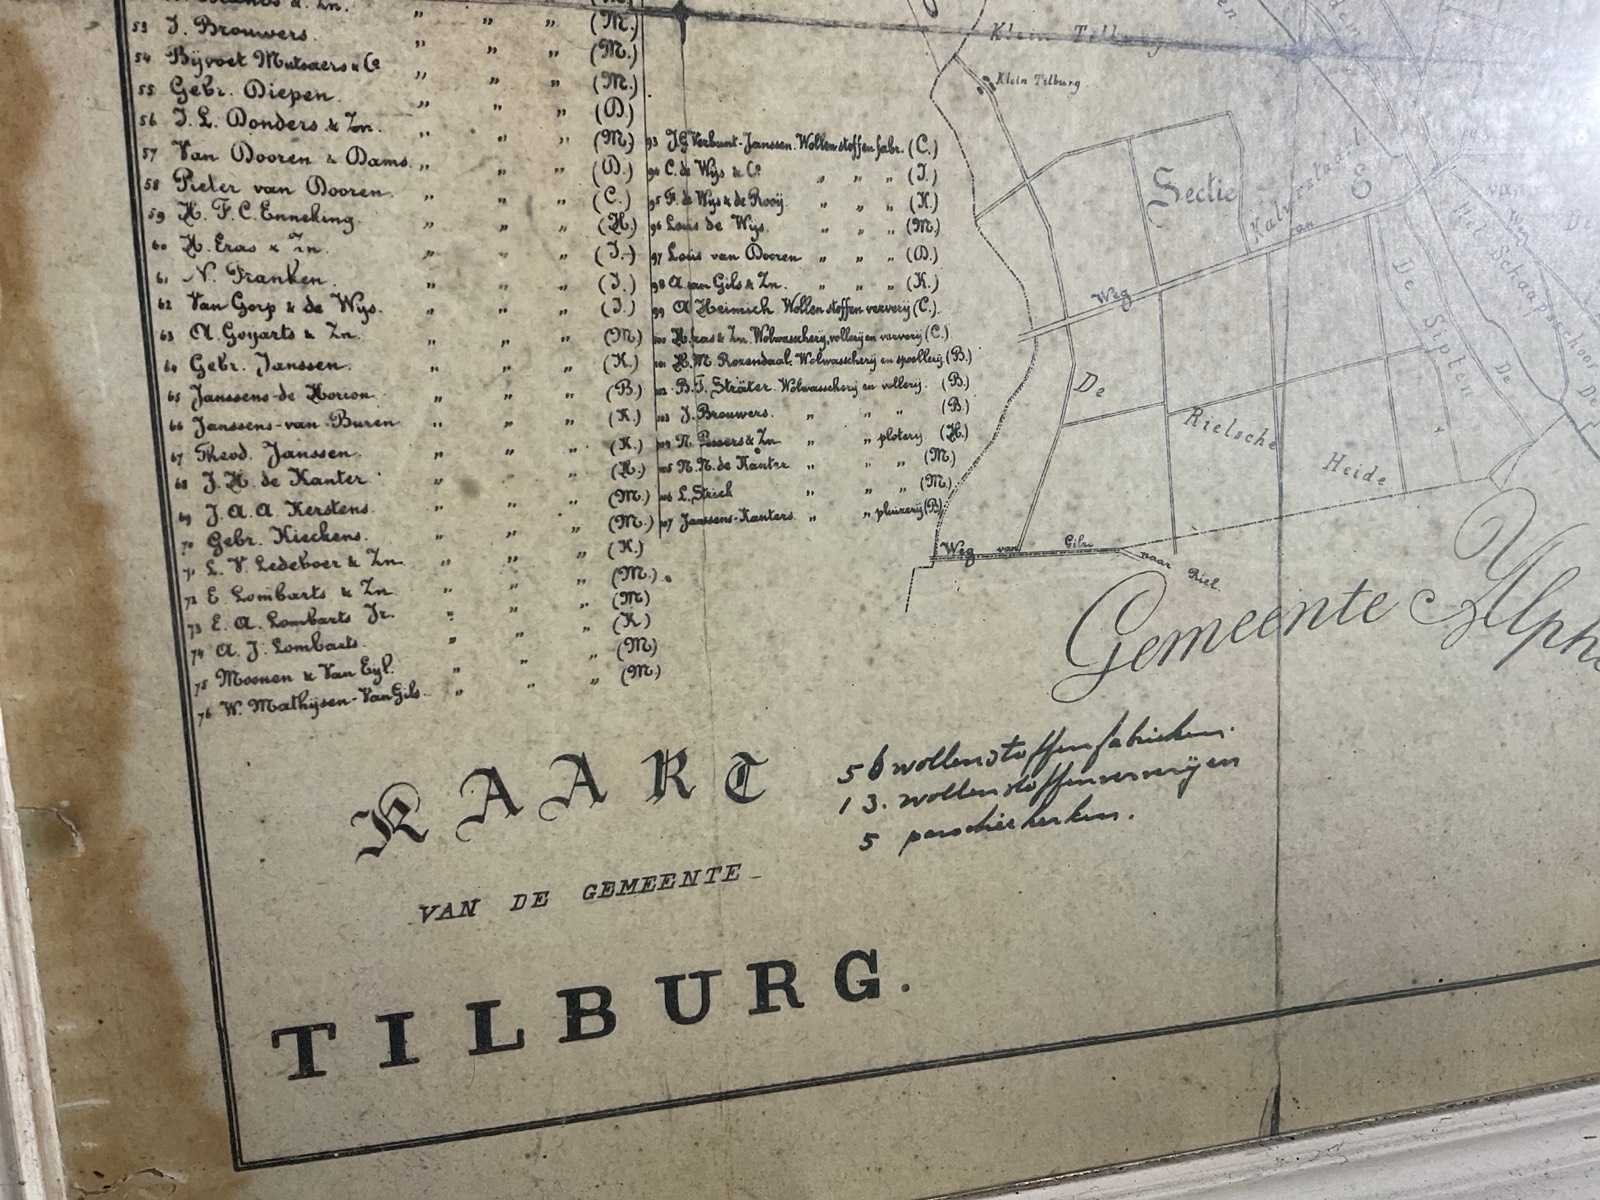 53 J. Brouwers. " " " (M.)
54 Bijvoet Mutsaers & Co " " " (M.)
55 Gebr. Diepen. " " " (M.)
56 J. L. Donders & Zn. " " " (D.)
57 Van Dooren & Dams. " " " (M.)
58 Pieter van Dooren. " " " (D.)
59 H. F. C. Enneking. " " " (C.)
60 H. Eras & Zn. " " " (H.)
61 N. Franken. " " " (I.)
62 Van Gorp & de Wijs. " " " (I.)
63 A. Goyarts & Zn. " " " (I.)
64 Gebr. Janssen. " " " (M.)
65 Janssens-de Horion. " " " (K.)
66 Janssens-van Buren " " " (B.)
67 Theod. Janssen. " " " (K.)
68 J. H. de Kanter " " " (K.)
69 J. A. A. Kerstens. " " "
70 Gebr. Kieckens. " " " (M.)
71 L. V. Ledeboer & Zn. " " " (M.)
72 E. Lombarts & Zn " " " (K.)
73 E. A. Lombarts Jr. " " " (M.)
74 A. J. Lombarts. " " " (M.)
75 Moonen & Van Eyl. " " " (K.)
76 W. Mathijsen-Van Gils. " " " (M.)
(M.)
93 J.G. Verbunt-Janssen. Wollenstoffenfabr. (C.)
94 C. de Wijs & Co " " " (I.)
95 F. de Wijs & de Rooij. " " " (K.)
96 Louis de Wijs. " " " (M.)
97 Louis van Dooren " " " (D.)
98 A. van Gils & Zn. " " " (K.)
99 A Heimich. Wollenstoffen ververij (C.)
100 H. Eras & Zn. Wolwasscherij, vollerij en ververij (C.)
101 H. M. Rozendaal. Wolwasscherij en spoellerij (B.)
102 B. T. Sträter. Wolwasscherij en vollerij. (B.)
103 J. Brouwers. " " " (B.)
104 N. Pessers & Zn " " ploterij (H.)
105 N. N. de Kanter " " " (M.)
106 L. Strick " " " (M.)
107 Janssens-Kanters. " " pluizerij (B.)
Klein Tilburg
Klein Tilburg
Sectie E
Kalverstraat
Weg van
Het Schaapsehoor
De
Siphen
De
De
Rielsche
Heide
Weg van Gilze naar Riel.
Gemeente Alph
56 wollenstoffenfabrieken.
13. wollenstoffenververijen
5 parochiekerken.
KAART
VAN DE GEMEENTE
TILBURG.